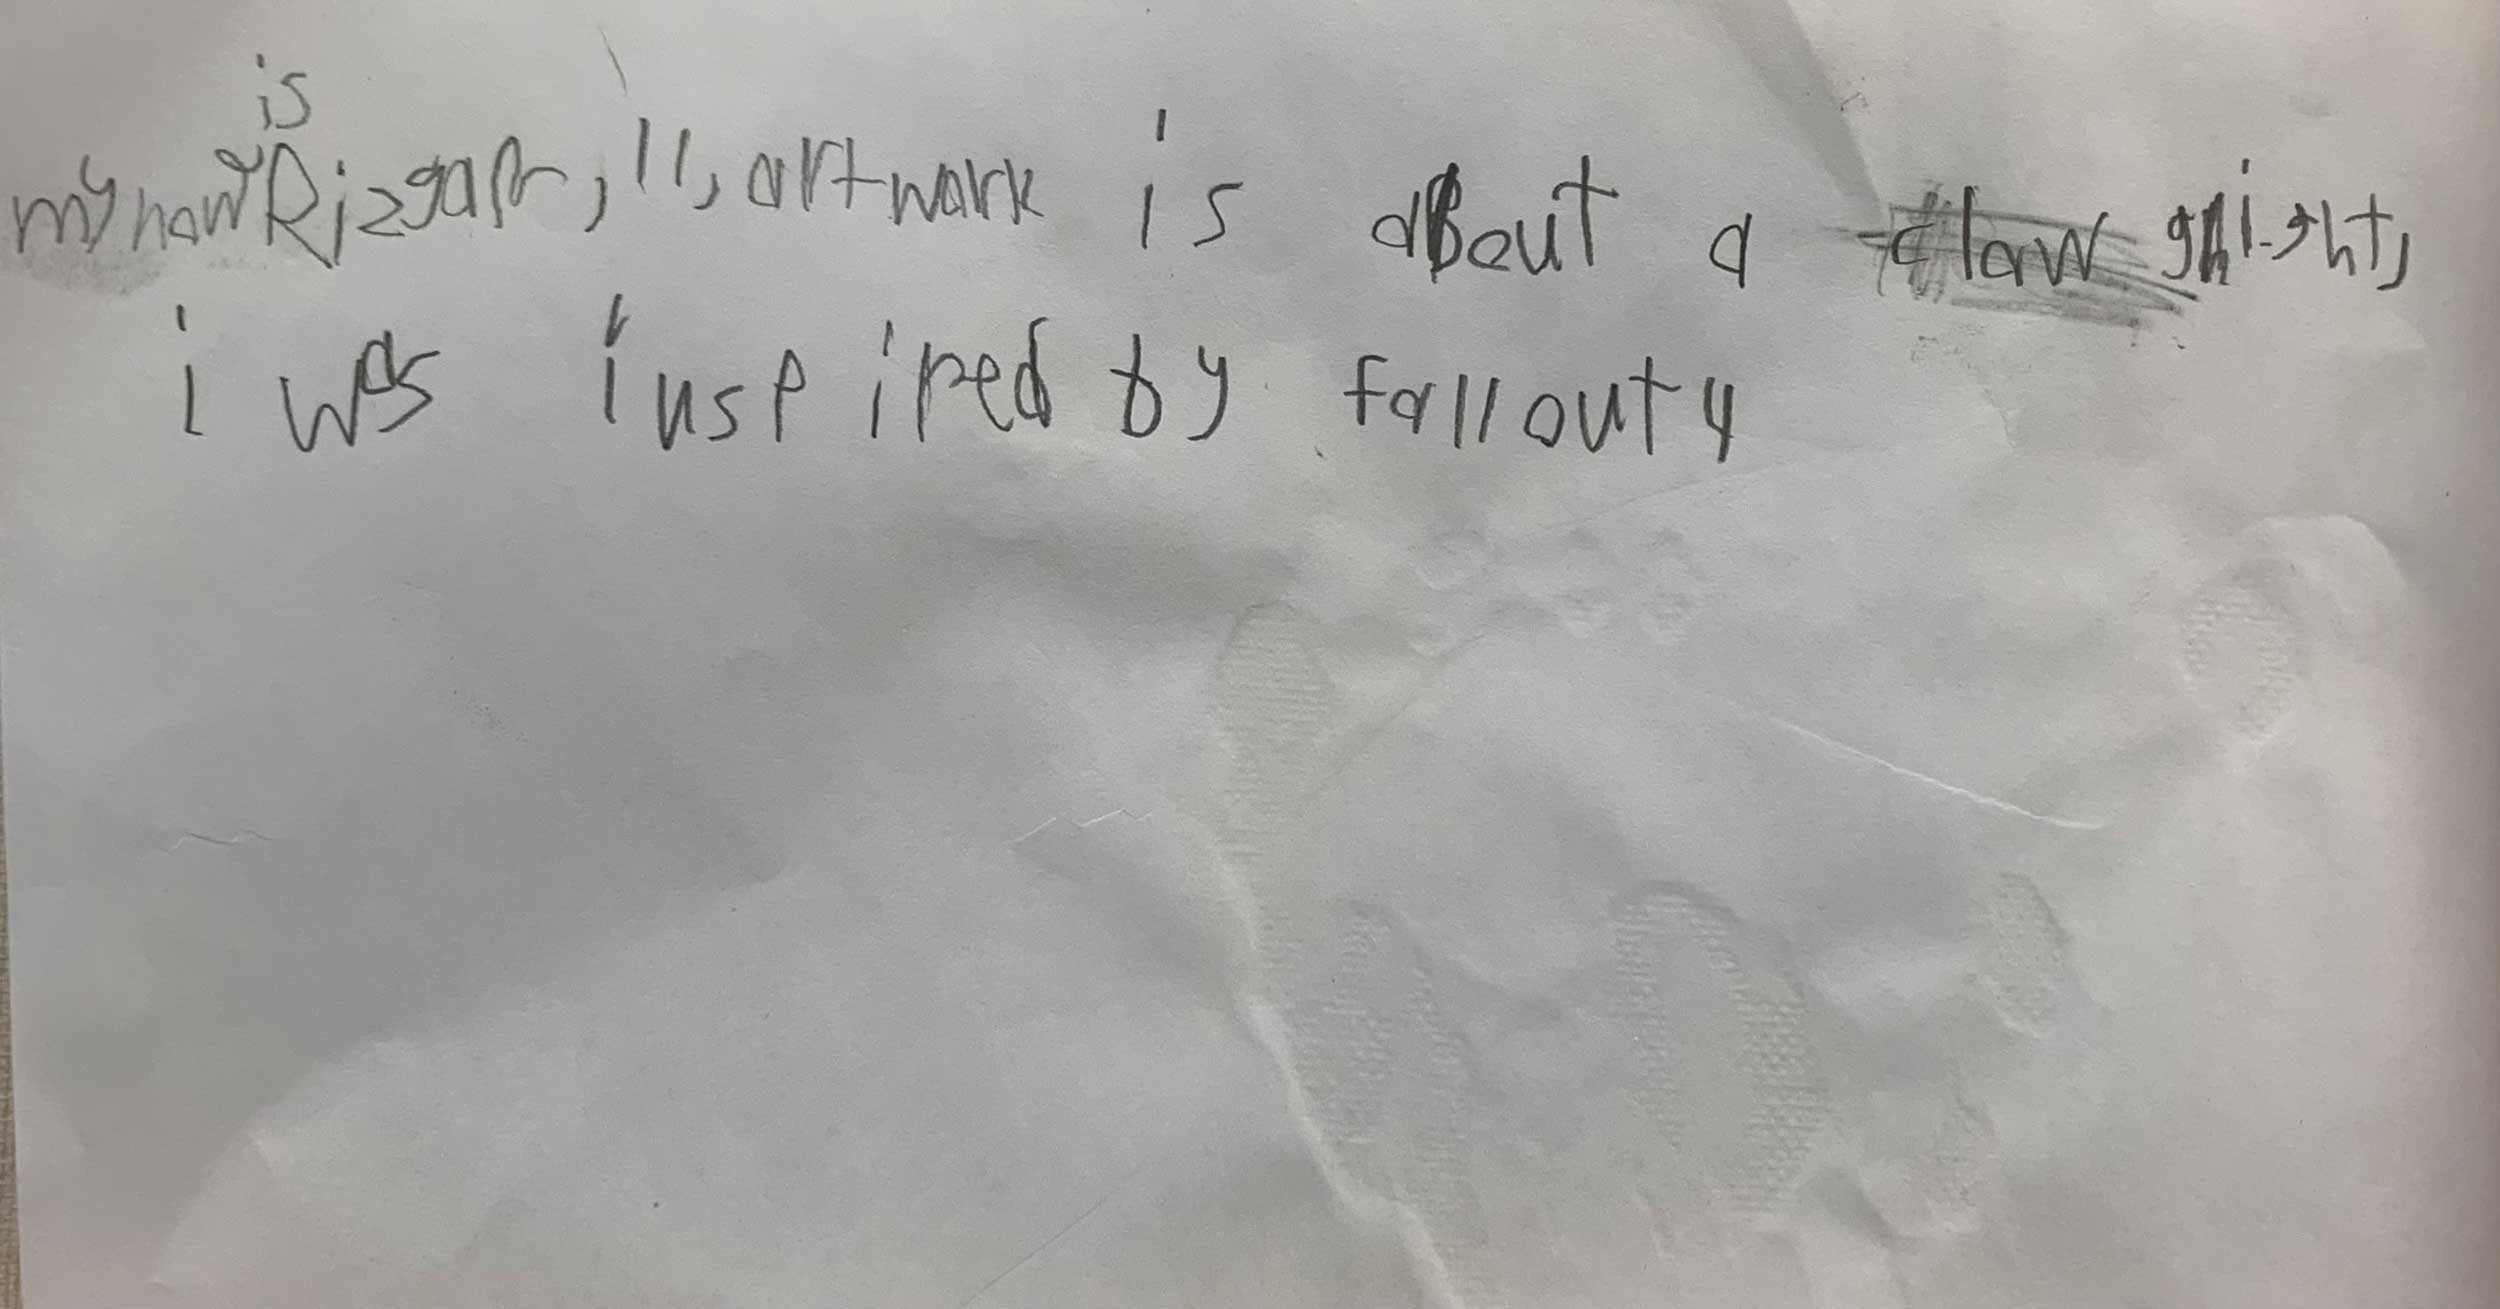 my name is Rizgar, 11, artwork is about a claw
i was inspired by fallout 4